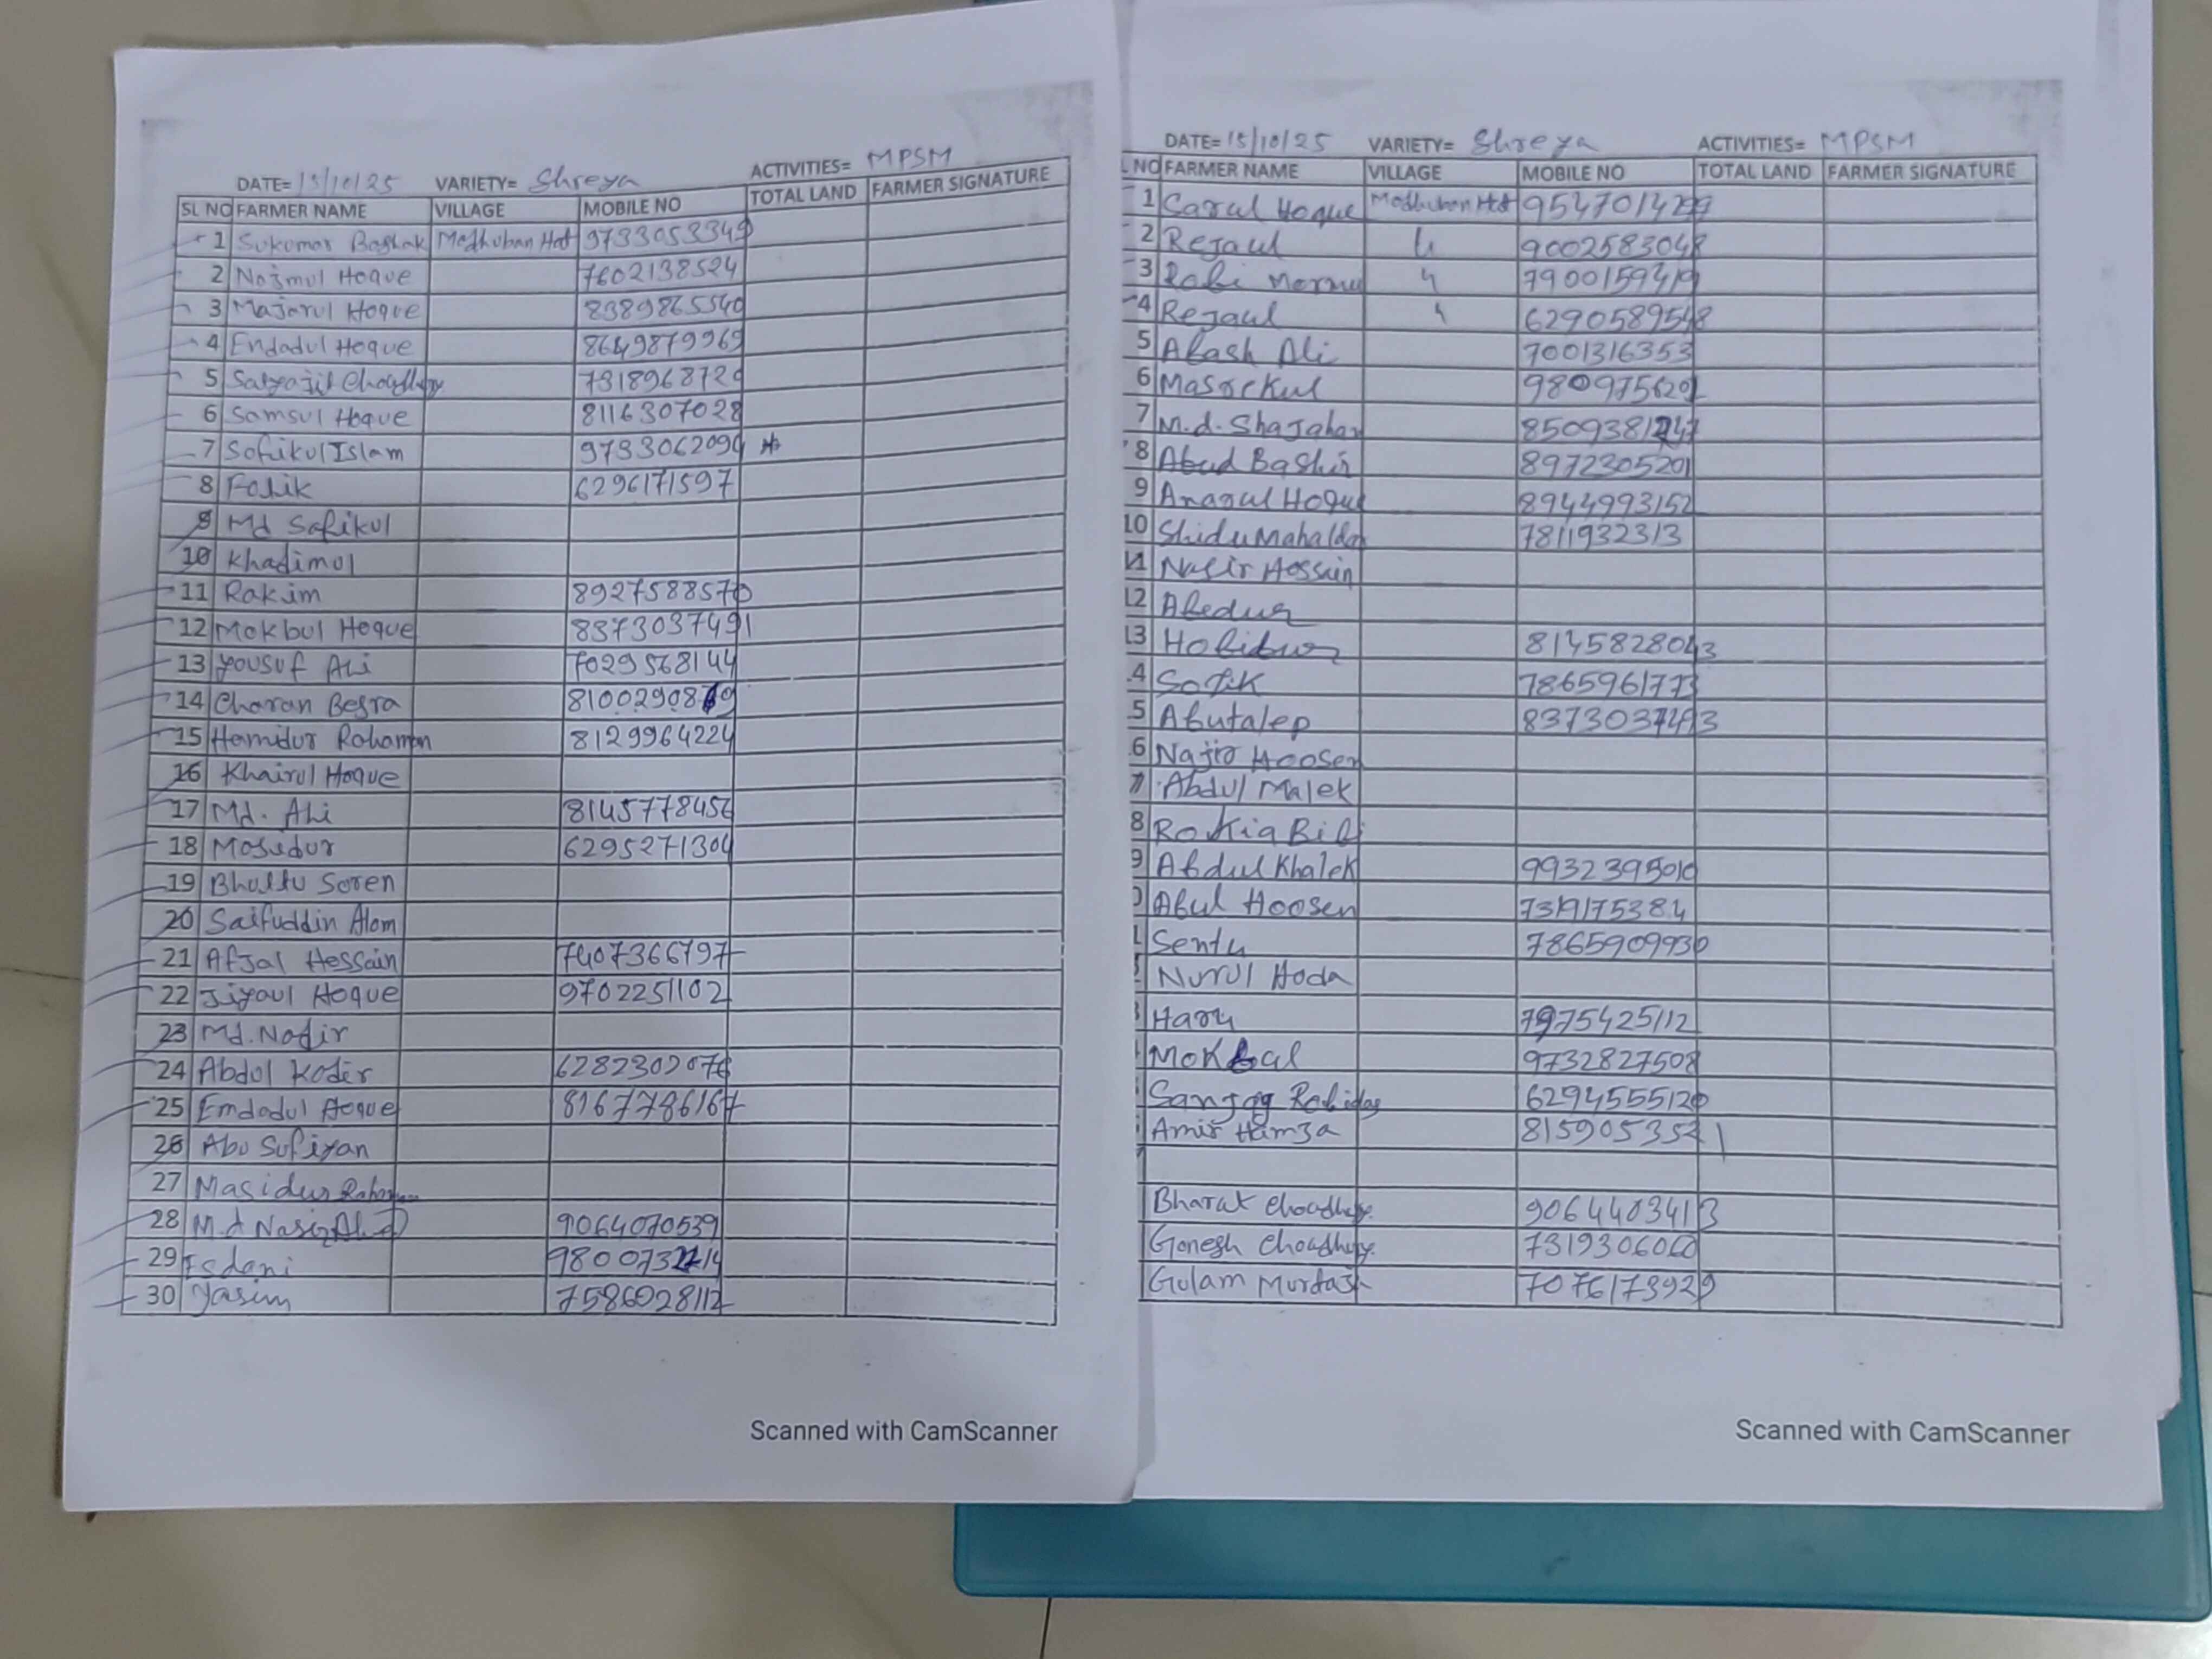 DATE= 15/10/25 VARIETY= Shreya ACTIVITIES= MPSM
SL NO FARMER NAME VILLAGE MOBILE NO TOTAL LAND FARMER SIGNATURE
1 Sukumar Bashak Madhuban Hat 9733053349
2 Nojmul Hoque 7602138524
3 Majarul Hoque 8389865540
4 Endadul Hoque 8649879969
5 Satyajit Choudhury 731896872
6 Samsul Hoque 8116307028
7 Sofikul Islam 973306209
8 Folik 6296171597
9 Md Safikul
10 Khadimol
11 Rakim 8927588570
12 Mokbul Hoque 8373037491
13 Yousuf Ali 7029568144
14 Charan Besra
15 Hamidur Rohaman 8129964224
16 Khairul Hoque
17 Md. Ali 8145778456
18 Mosedur 6295271304
19 Bhultu Soren
20 Saifuddin Alom
21 Afjal Hessain 7407366797
22 Jiyaul Hoque 9702251102
23 Md. Nadir
24 Abdul Kader 6282302076
25 Emdadul Hoque 8167786167
26 Abu Sufiyan
27 Masidur Rahaman
28 M.d Nasir Ali 9064070539
29 Esdani
30 Yasim 7586028112
Scanned with CamScanner
DATE= 15/10/25 VARIETY= Shreya ACTIVITIES= MPSM
L NO FARMER NAME VILLAGE MOBILE NO TOTAL LAND FARMER SIGNATURE
1 Sarul Hoque Madhuban Hat 9547014299
2 Rejaul " 9002583048
3 Rabi Mormu " 7900159419
4 Rejaul " 6290589548
5 Akash Ali 7001316353
6 Masrekul 9809756202
7 M.d. Shajahan
8 Abud Bashir 8972305201
9 Anarul Hoque 8944993152
10 Shidu Mahaldar 7811932313
11 Nasir Hossain
12 Abedur
13 Hobibur 8145828043
4 Sofik 7865961773
5 Abutalep 8373037493
6 Najir Hoosen
7 Abdul Malek
8 Rokia Bibi
9 Abdul Khalek 9932395010
0 Abul Hoosen 7319175384
1 Sentu 7865909930
Nurul Hoda
Haru 7975425112
Mokbul 9732827508
Sanjay Robidas 6294555120
Amir Hamza 8159053521
Bharat Choudhury. 9064403413
Gonesh Choudhury. 7319306060
Golam Murtaja 7076173929
Scanned with CamScanner